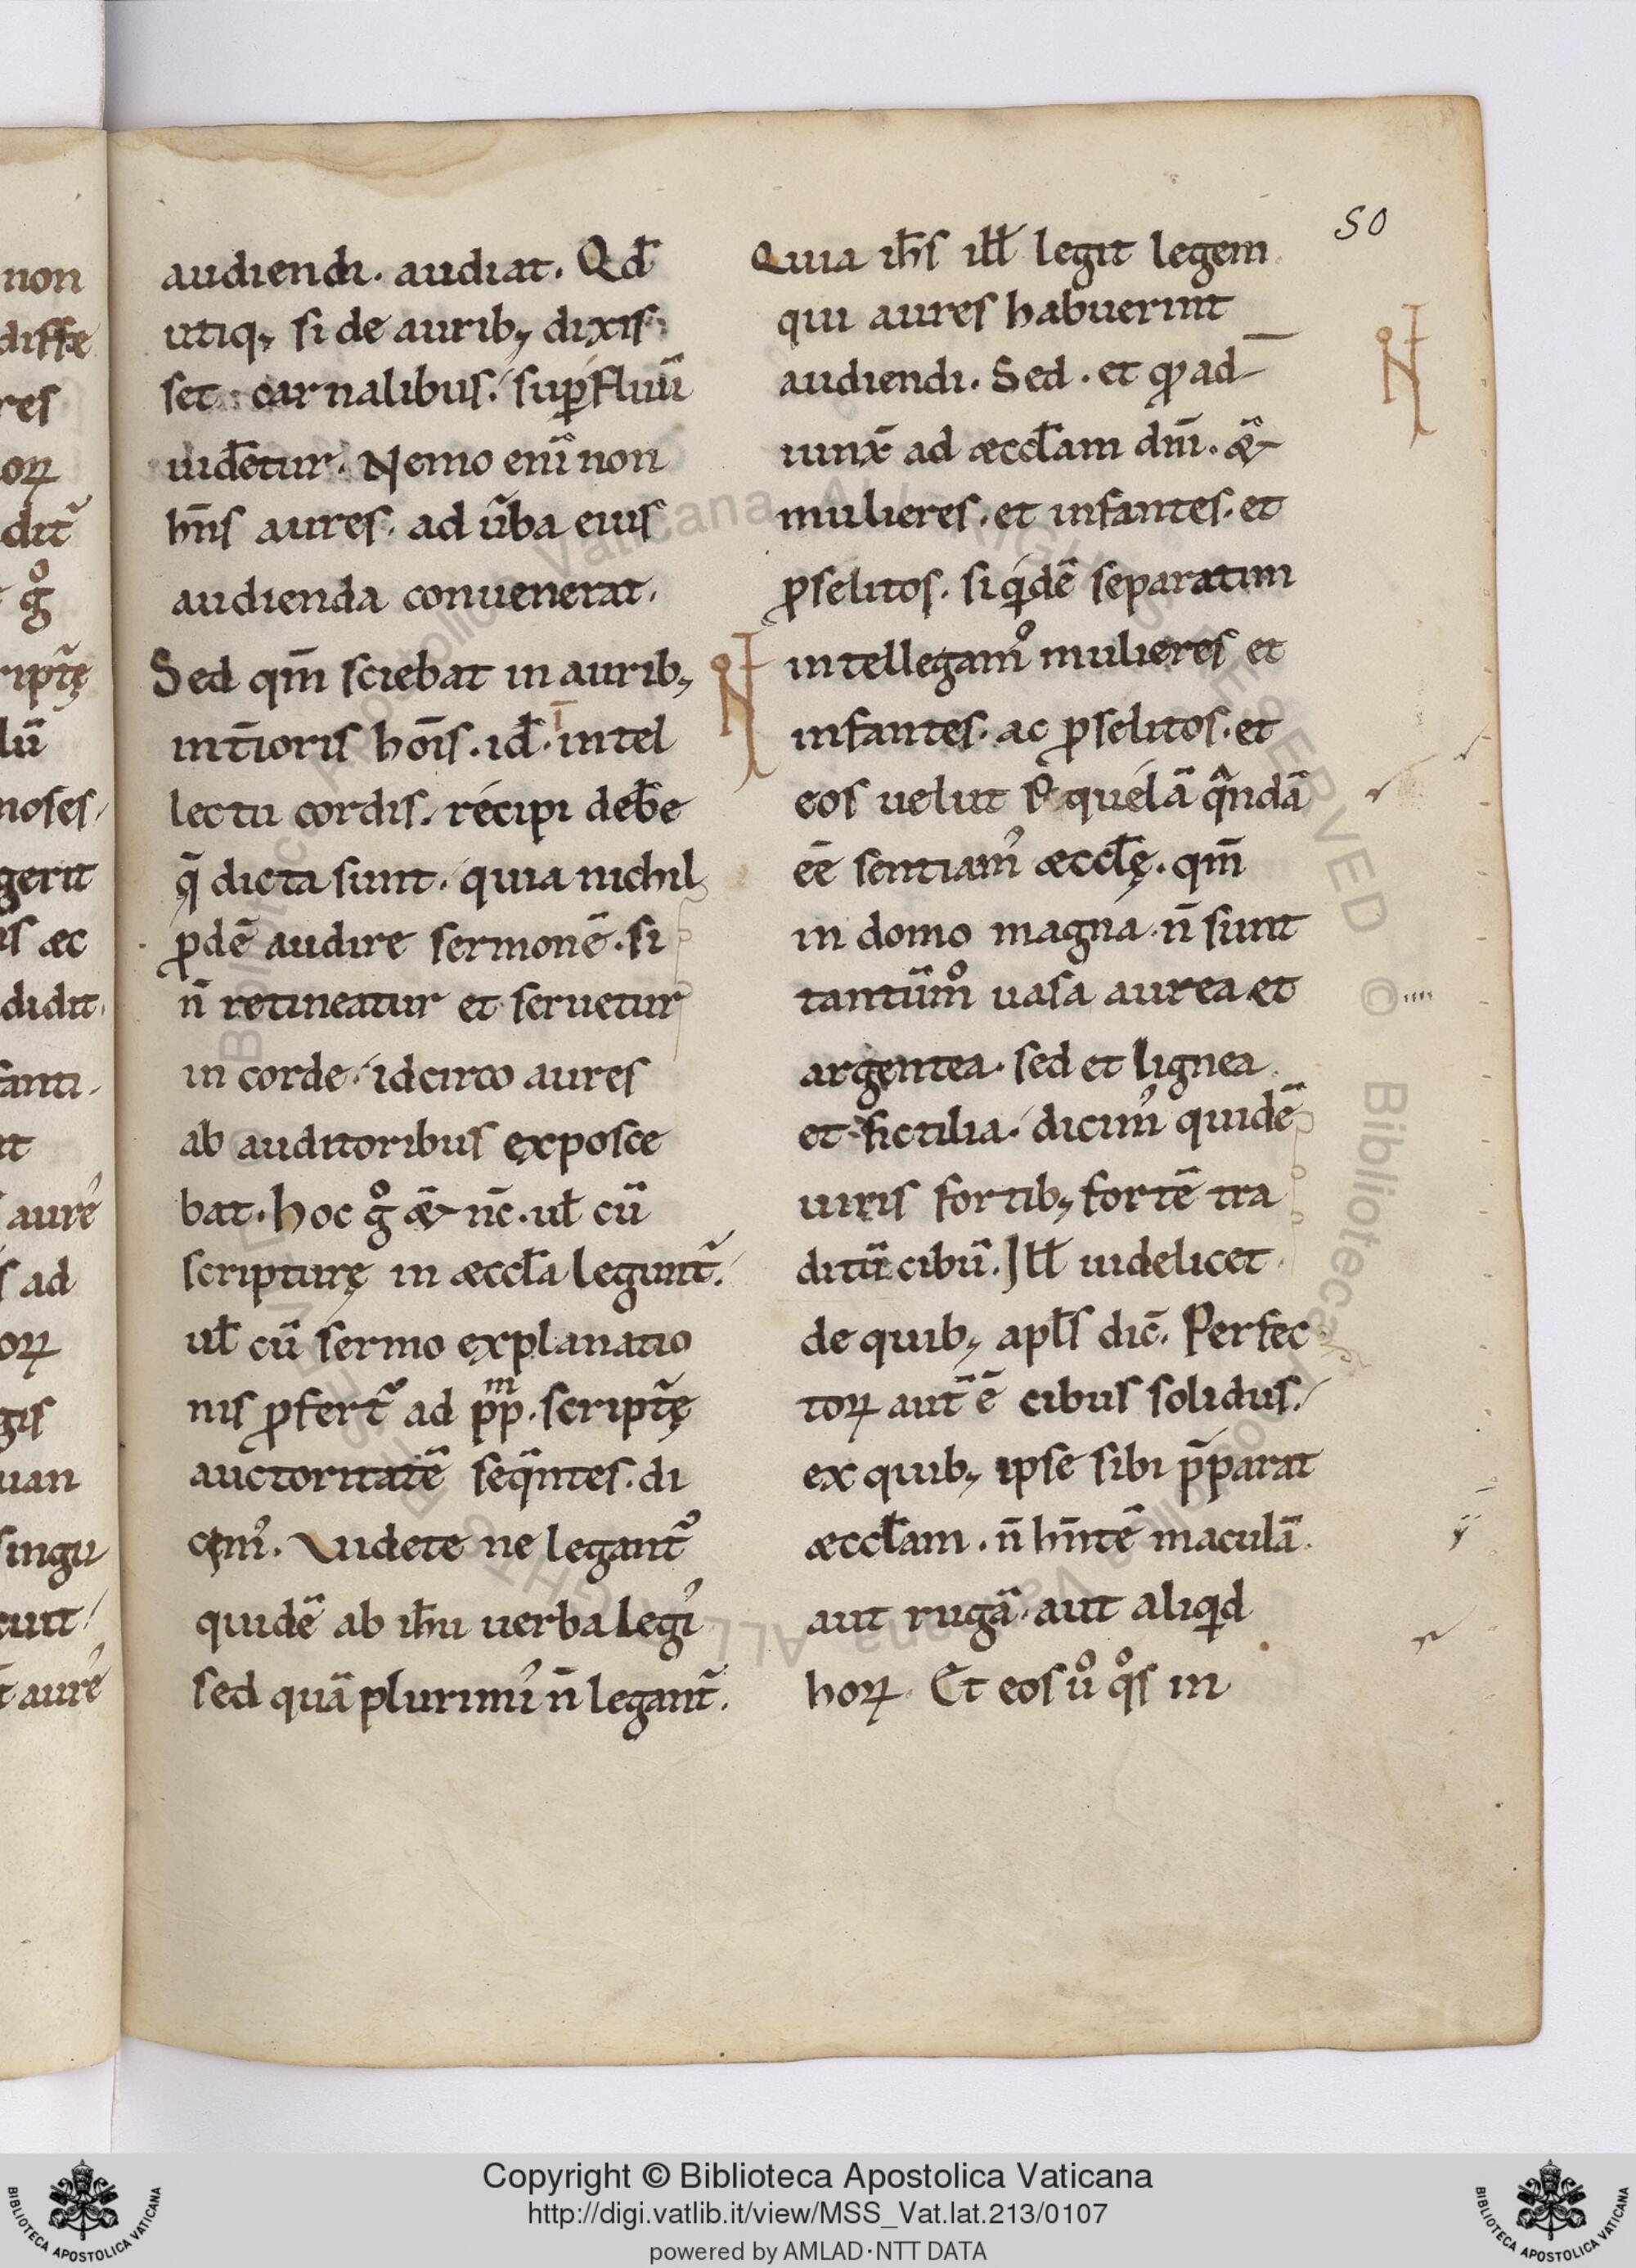 50
audiendi. audiat. Qd̄
utiq; si de aurib; dixis
set carnalibus. sup̱fluū
uidet̄ur. Nemo enī non
hn̄s aures. ad ūba eius
audienda conuenerat.
Sed qm̄ sciebat in aurib;
int̄ioris hōis. id̄. intel
lectu cordis. recipi deb̄e
q̄ dicta sunt. quia nichil
ꝓdē audire sermonē. si
n̄ retineatur et seruetur
in corde. idcirco aures
ab auditoribus exposce
bat. hoc gͦ & nc̄. ul̄ cū
scripturę in æccl̄a legunt̄.
ul̄ cū sermo explanatio
nis ꝓfert̄ ad pp̄m. script̄ę
auctoritatē seq̄ntes. di
cim᾽. Uidete ne legant̄
quidē ab ih̄u uerba legi᾽
sed quā plurimi᾽ n̄ legant̄.
Quia ih̄s ill̄ legit legem
qui aures habuerint
audiendi. Sed. et qͦ ad
iunx̄ ad æccl̄am dn̄i. &
mulieres. et infantes. et
ꝓselitos. siqͥdē separatim
intellegamͦ mulieres et
infantes. ac ꝓselitos. et
eos uelut sequelā qͣndā
ēē sentiam᾽ æccl̄ę. qm̄
in domo magna n̄ sunt
tantūmͦ uasa aurea et
argentea. sed et lignea
et fictilia. dicim᾽ quidē
uiris fortib; fortē tra
ditū cibū. Ill̄ uidelicet
de quib; apl̄s dic̄. Perfec
toꝝ aut̄ ē cibus solidus.
ex quib; ipse sibi p̄parat
æccl̄am. n̄ hn̄tē maculā
aut rugā. aut aliqͥd
hoꝝ. Et eos uͦ qͦs in
non
diffe
res
oꝝ
dit̄
gͦ
ript̄ę
lū
moses
gerit
is æc
didit
fanti
it
aure᾽
ad
oꝝ
gis
uan
singu
cuit
aure᾽
Copyright © Biblioteca Apostolica Vaticana
http://digi.vatlib.it/view/MSS_Vat.lat.213/0107
powered by AMLAD·NTT DATA
BIBLIOTECA APOSTOLICA VATICANA
BIBLIOTECA APOSTOLICA VATICANA